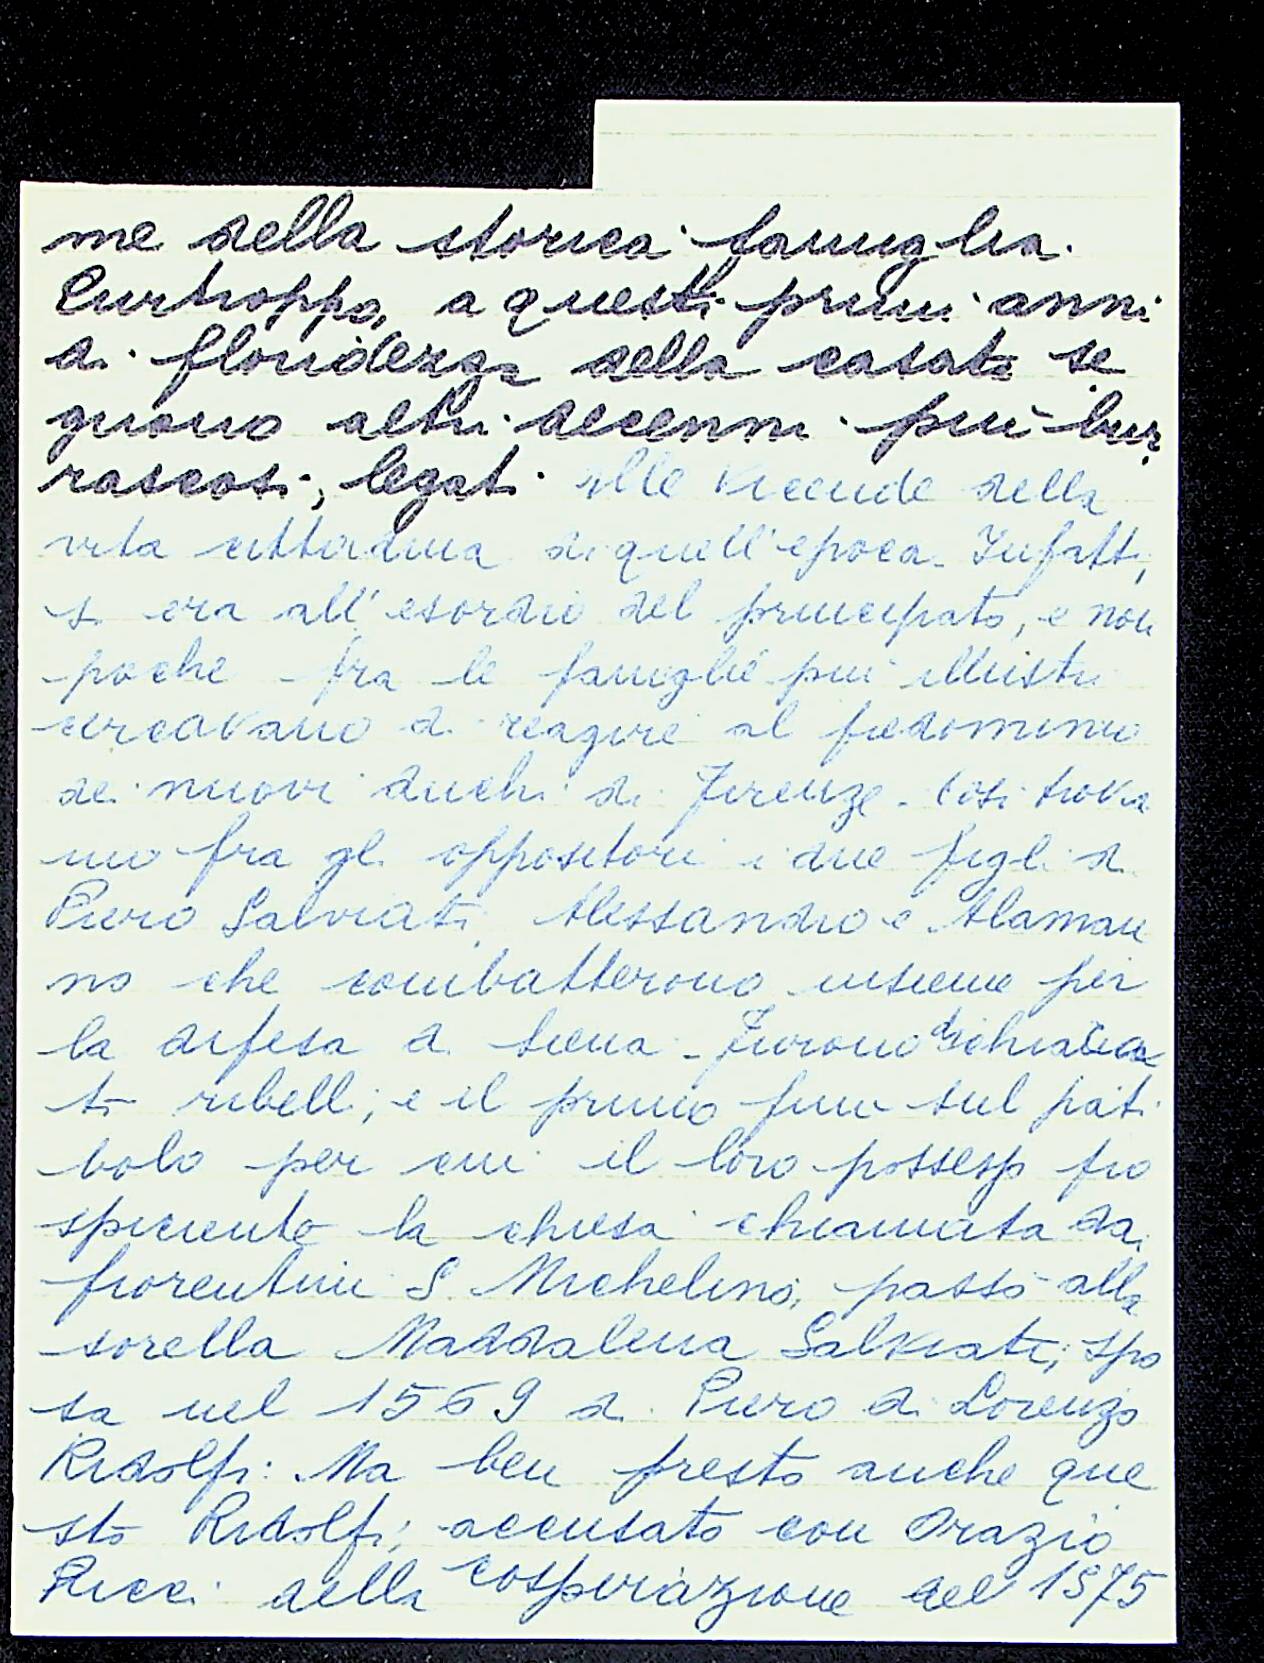 me della storica famiglia.
Purtroppo, a questi primi anni
di floridezza della casata se
guono altri decenni più bur
rascosi, legati alle vicende della
vita cittadina di quell'epoca. Infatti,
si era all'esordio del principato, e non
poche fra le famiglie più illustri
cercavano di reagire al predominio
dei nuovi duchi di Firenze. Così trovia
mo fra gli oppositori i due figli di
Piero Salviati, Alessandro e Alaman
no che combatterono insieme per
la difesa di Siena. Furono dichiara
ti ribelli; e il primo finì sul pati
bolo per cui il loro possesso pro
spiciente la chiesa chiamata dai
fiorentini S. Michelino, passò alla
sorella Maddalena Salviati, spo
sa nel 1569 di Piero di Lorenzo
Ridolfi. Ma ben presto anche que
sto Ridolfi, accusato con Orazio
Pucci della cospirazione del 1575